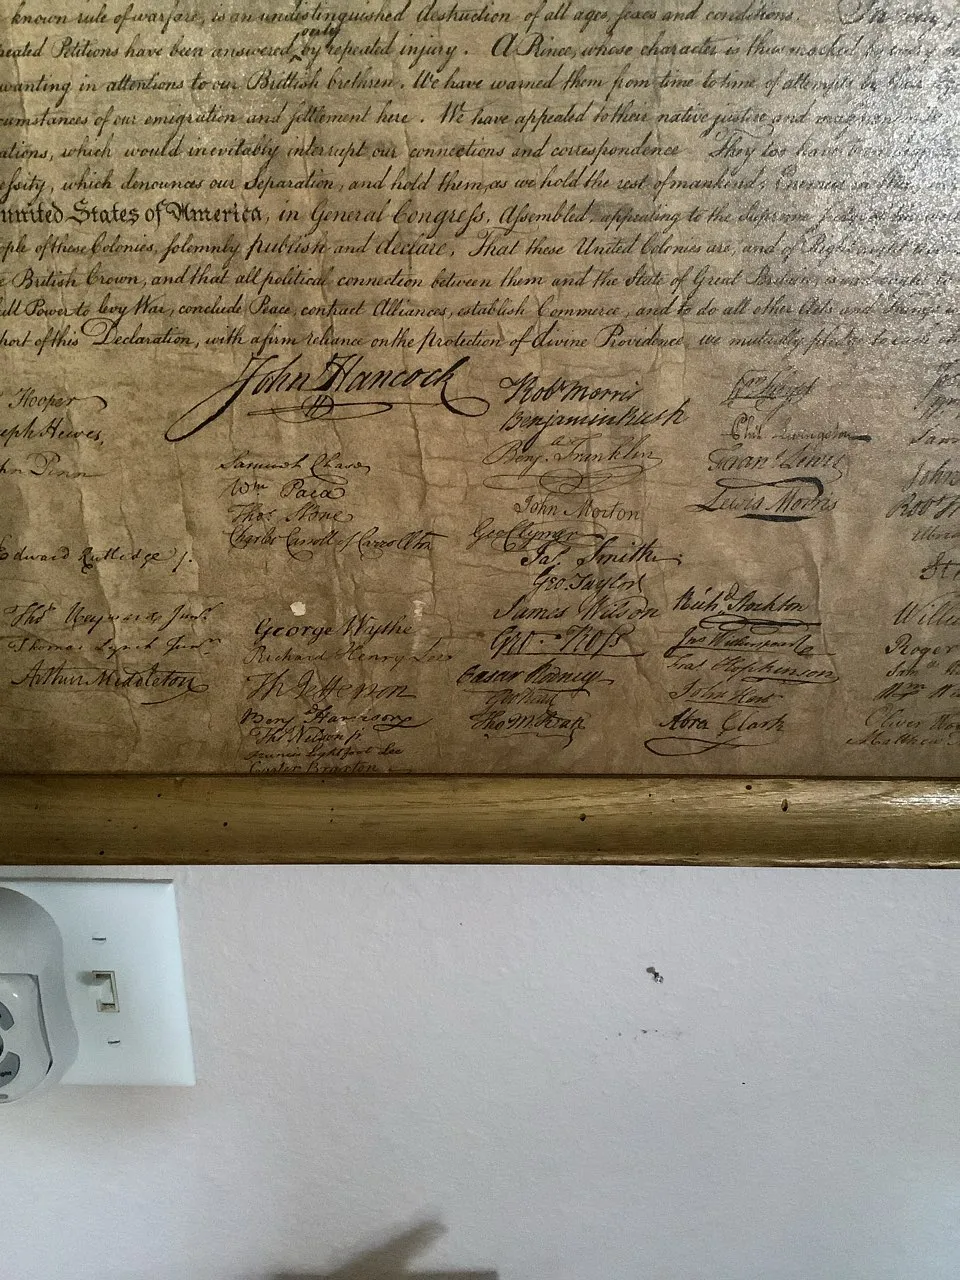 known rule of warfare, is an undistinguished destruction of all ages, sexes and conditions. In every
only
peated Petitions have been answered by repeated injury. A Prince, whose character is thus marked by every
wanting in attentions to our Brittish brethren. We have warned them from time to time of attempts by their
cumstances of our emigration and settlement here. We have appealed to their native justice and
ations, which would inevitably interrupt our connections and correspondence They too have been deaf
cessity, which denounces our Separation, and hold them, as we hold the rest of mankind, Enemies in
united States of America, in General Congress, Assembled, appealing to the Supreme Judge of the
ple of these Colonies, solemnly publish and declare, That these United Colonies are, and of Right ought
e British Crown, and that all political connection between them and the State of Great Britain, is and ought to
ull Power to levy War, conclude Peace, contract Alliances, establish Commerce, and to do all other Acts and Things
port of this Declaration, with a firm reliance on the protection of divine Providence, we mutually pledge to each
John Hancock
Hooper
eph Hewes,
hn Penn
Edward Rutledge /.
Thos Heyward Junr.
Thomas Lynch Junr.
Arthur Middleton
Samuel Chase
Wm Paca
Thos Stone
Charles Carroll of Carrollton
George Wythe
Richard Henry Lee
Th Jefferson
Benj Harrison
Thos Nelson jr
Francis Lightfoot Lee
Carter Braxton
Robt Morris
Benjamin Rush
Benja Franklin
John Morton
Geo Clymer
Jas Smith
Geo. Taylor
James Wilson
Geo. Ross
Caesar Rodney
Geo Read
Tho M:Kean
Wm Floyd
Phil. Livingston
Frans Lewis
Lewis Morris
Richd Stockton
Jno Witherspoon
Fras Hopkinson
John Hart
Abra Clark
John
Robt
Willi
Roger
Samel
Wm
Oliver
Matthew